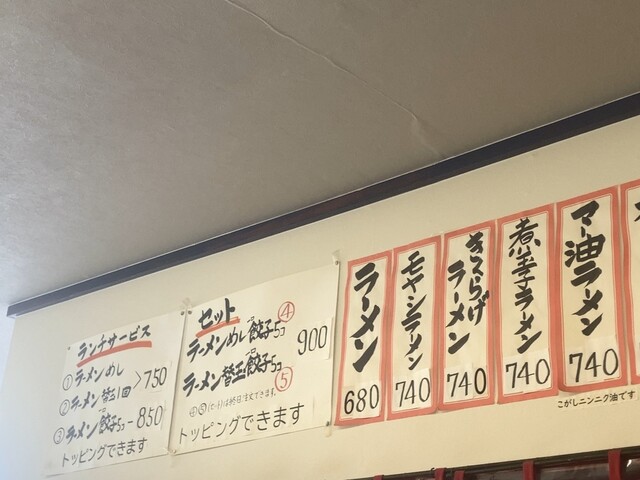 ランチサービス
①ラーメンめし
②ラーメン替玉1回
>750
③ラーメン餃子5コ-850
トッピングできます
セット
④
ラーメンめし餃子5コ
900
ラーメン替玉餃子5コ
⑤
④⑤(セット)は終日注文できます。
トッピングできます
ラーメン
680
モヤシラーメン
740
きくらげラーメン
740
煮玉子ラーメン
740
マー油ラーメン
740
こがしニンニク油です